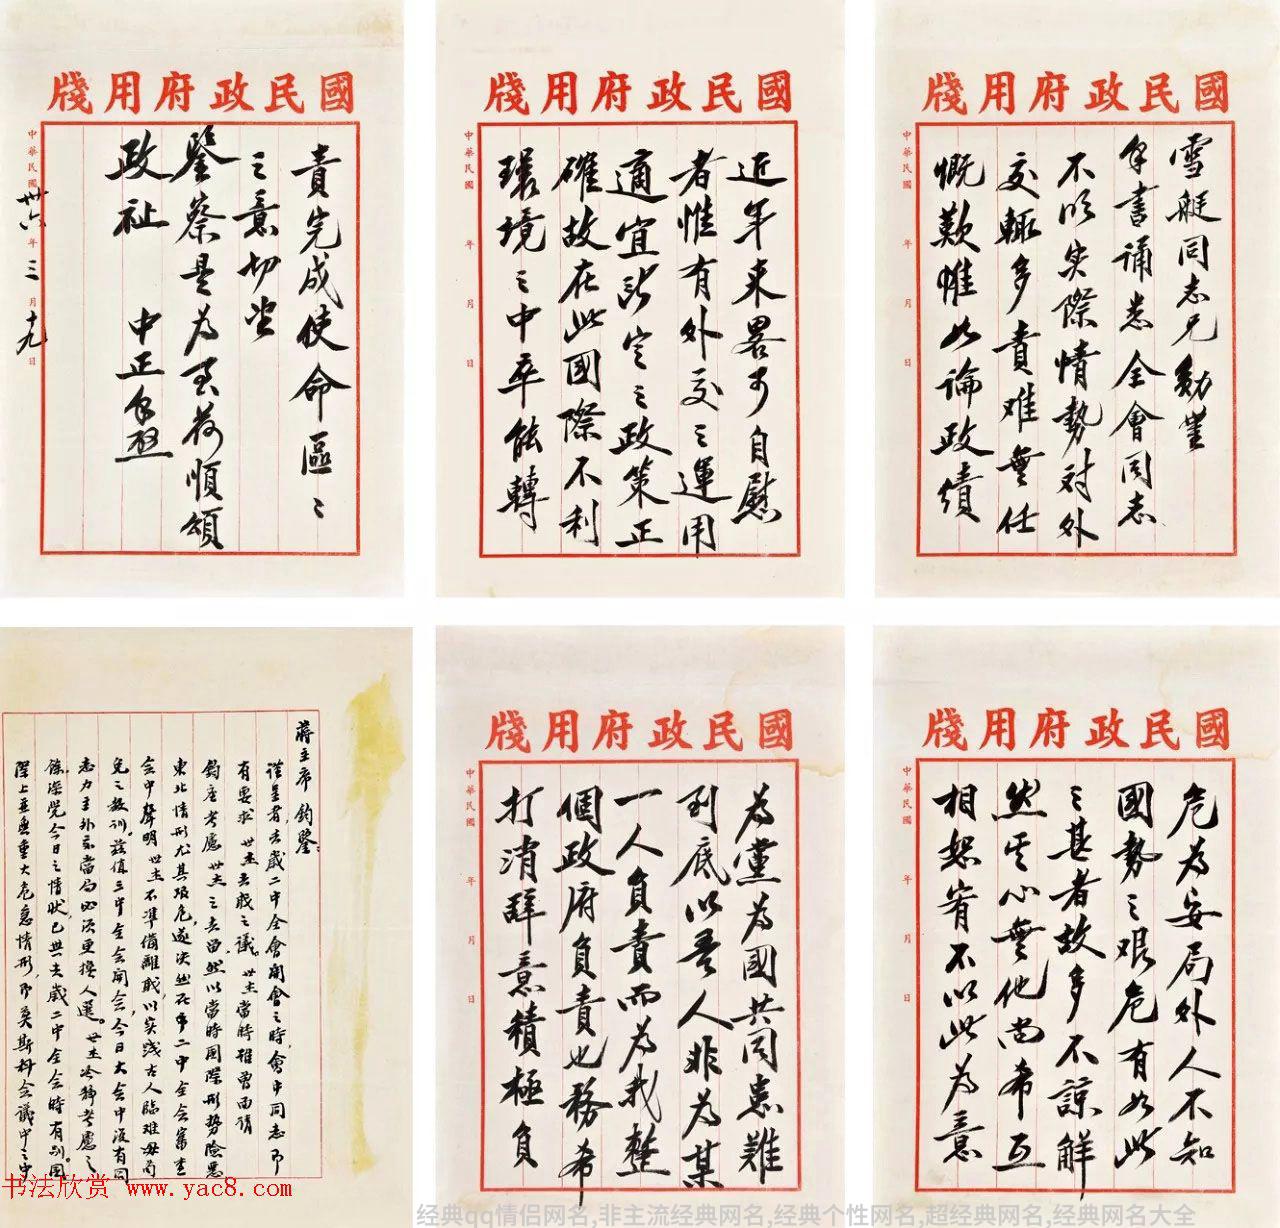 國民政府用牋
雪艇同志兄勳鑒
手書誦悉全會同志
不以実際情勢对外
交輒多責难無任
慨歎惟如論政績
中華民國 年 月 日
國民政府用牋
近年来畧可自慰
者惟有外交之運用
適宜所定之政策正
確故在此國際不利
環境之中卒能轉
中華民國 年 月 日
國民政府用牋
危為安局外人不知
國勢之艱危有如此
之甚者故多不諒解
然其心無他尚希互
相恕宥不以此為意
中華民國 年 月 日
國民政府用牋
為黨為國共同患難
到底以吾人非為某
一人負責而為我整
個政府負責也務希
打消辞意積極負
中華民國 年 月 日
國民政府用牋
責完成使命區之
之意切盼
鑒察是為至荷順頌
政祉 中正手啟
中華民國卅六年三月十九日
蔣主席鈞鑒
謹呈者,去歲二中全會開會之時,會中同志即
有要求世杰去職之議。世杰當時雖曾面請
鈞座考慮世杰之去留,然以當時國際形勢險惡
東北情形尤其艱危,遂決然在二中全會審查
会中聲明世杰不準備離職,以实踐古人臨难毋苟
免之教训。茲值三中全会開会,今日大会中復有同
志力主外交當局必须更換人選。世杰冷静考慮之
餘,深覺今日之情狀,已與去歲二中全会時有别。國
際上並無重大危急情形,即莫斯科会議中之中
书法欣赏 www.yac8.com
经典qq情侣网名,非主流经典网名,经典个性网名,超经典网名,经典网名大全